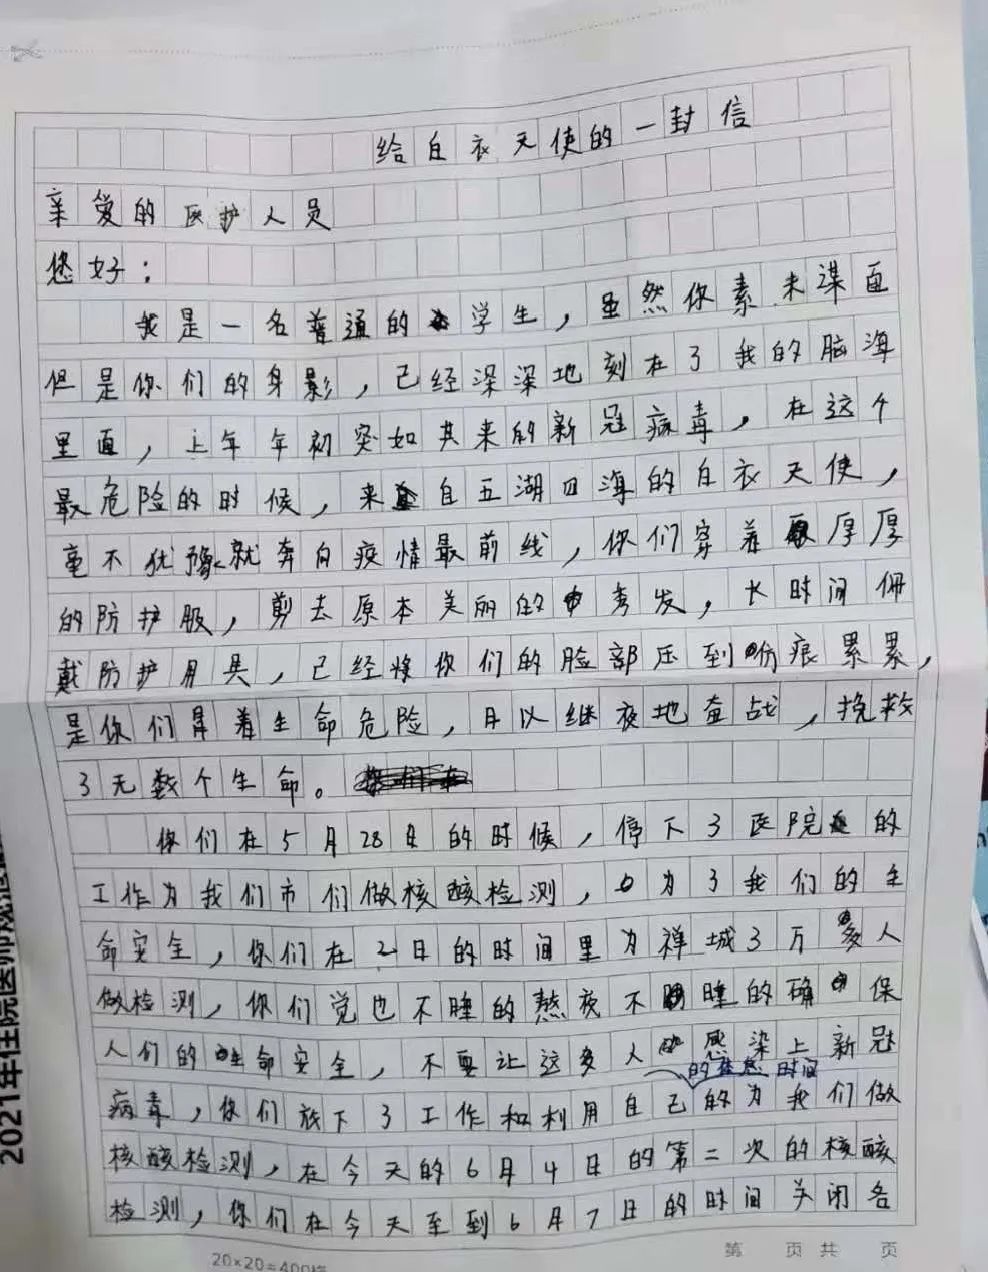 给白衣天使的一封信
亲爱的医护人员
您好：
我是一名普通的学生，虽然你素未谋面
但是你们的身影，已经深深地刻在了我的脑海
里面，上年年初突如其来的新冠病毒，在这个
最危险的时候，来自五湖四海的白衣天使，
毫不犹豫就奔向疫情最前线，你们穿着厚厚
的防护服，剪去原本美丽的秀发，长时间佩
戴防护用具，已经将你们的脸部压到伤痕累累，
是你们冒着生命危险，日以继夜地奋战，挽救
了无数个生命。
你们在5月28日的时候，停下了医院的
工作为我们市们做核酸检测，为了我们的生
命安全，你们在2日的时间里为禅城3万多人
做检测，你们觉也不睡的熬夜不睡的确保
人们的生命安全，不要让这多人感染上新冠
的休息时间
病毒，你们放下了工作和利用自己的为我们做
核酸检测，在今天的6月4日的第二次的核酸
检测，你们在今天至到6月7日的时间关闭各
第 页共 页
20×20=400格